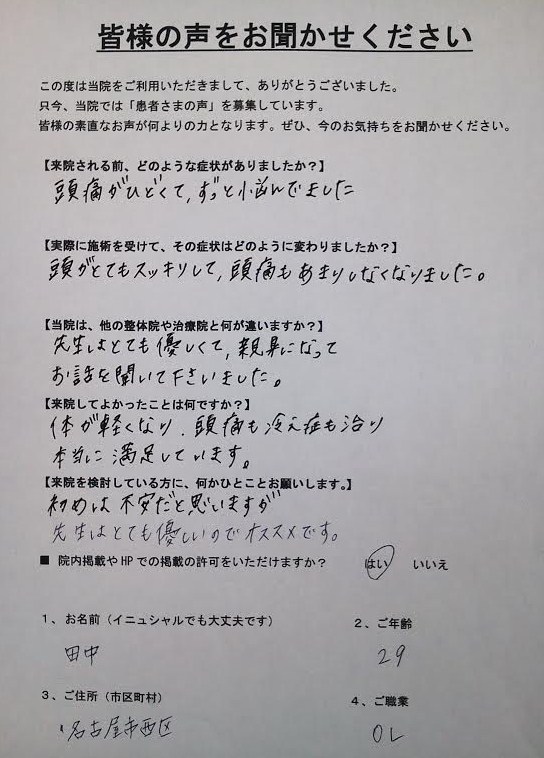 皆様の声をお聞かせください
この度は当院をご利用いただきまして、ありがとうございました。
只今、当院では「患者さまの声」を募集しています。
皆様の素直なお声が何よりの力となります。ぜひ、今のお気持ちをお聞かせください。
【来院される前、どのような症状がありましたか？】
頭痛がひどくて、ずっと悩んでました
【実際に施術を受けて、その症状はどのように変わりましたか？】
頭がとてもスッキリして、頭痛もあまりしなくなりました。
【当院は、他の整体院や治療院と何が違いますか？】
先生はとても優しくて、親身になって
お話を聞いて下さいました。
【来院してよかったことは何ですか？】
体が軽くなり、頭痛も冷え症も治り
本当に満足しています。
【来院を検討している方に、何かひとことお願いします。】
初めは不安だと思いますが
先生はとても優しいのでオススメです。
■ 院内掲載やHPでの掲載の許可をいただけますか？ はい いいえ
1、お名前（イニュシャルでも大丈夫です） 2、ご年齢
田中 29
3、ご住所（市区町村） 4、ご職業
名古屋市西区 OL